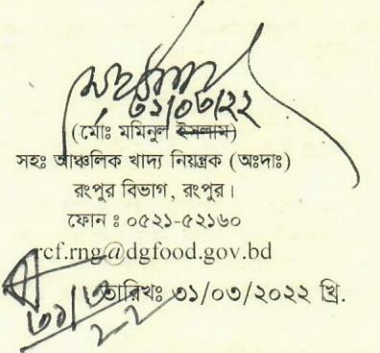 ৩১/০৩/২২
(মোঃ মমিনুল ইসলাম)
সহঃ আঞ্চলিক খাদ্য নিয়ন্ত্রক (অঃদাঃ)
রংপুর বিভাগ, রংপুর।
ফোন ঃ ০৫২১-৫২১৬০
rcf.rng@dgfood.gov.bd
তারিখঃ ৩১/০৩/২০২২ খ্রি.